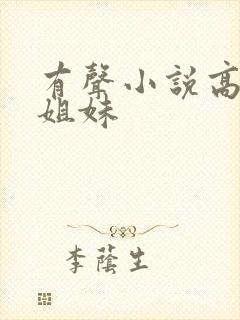 有聲小說高
姐妹
李蔭生